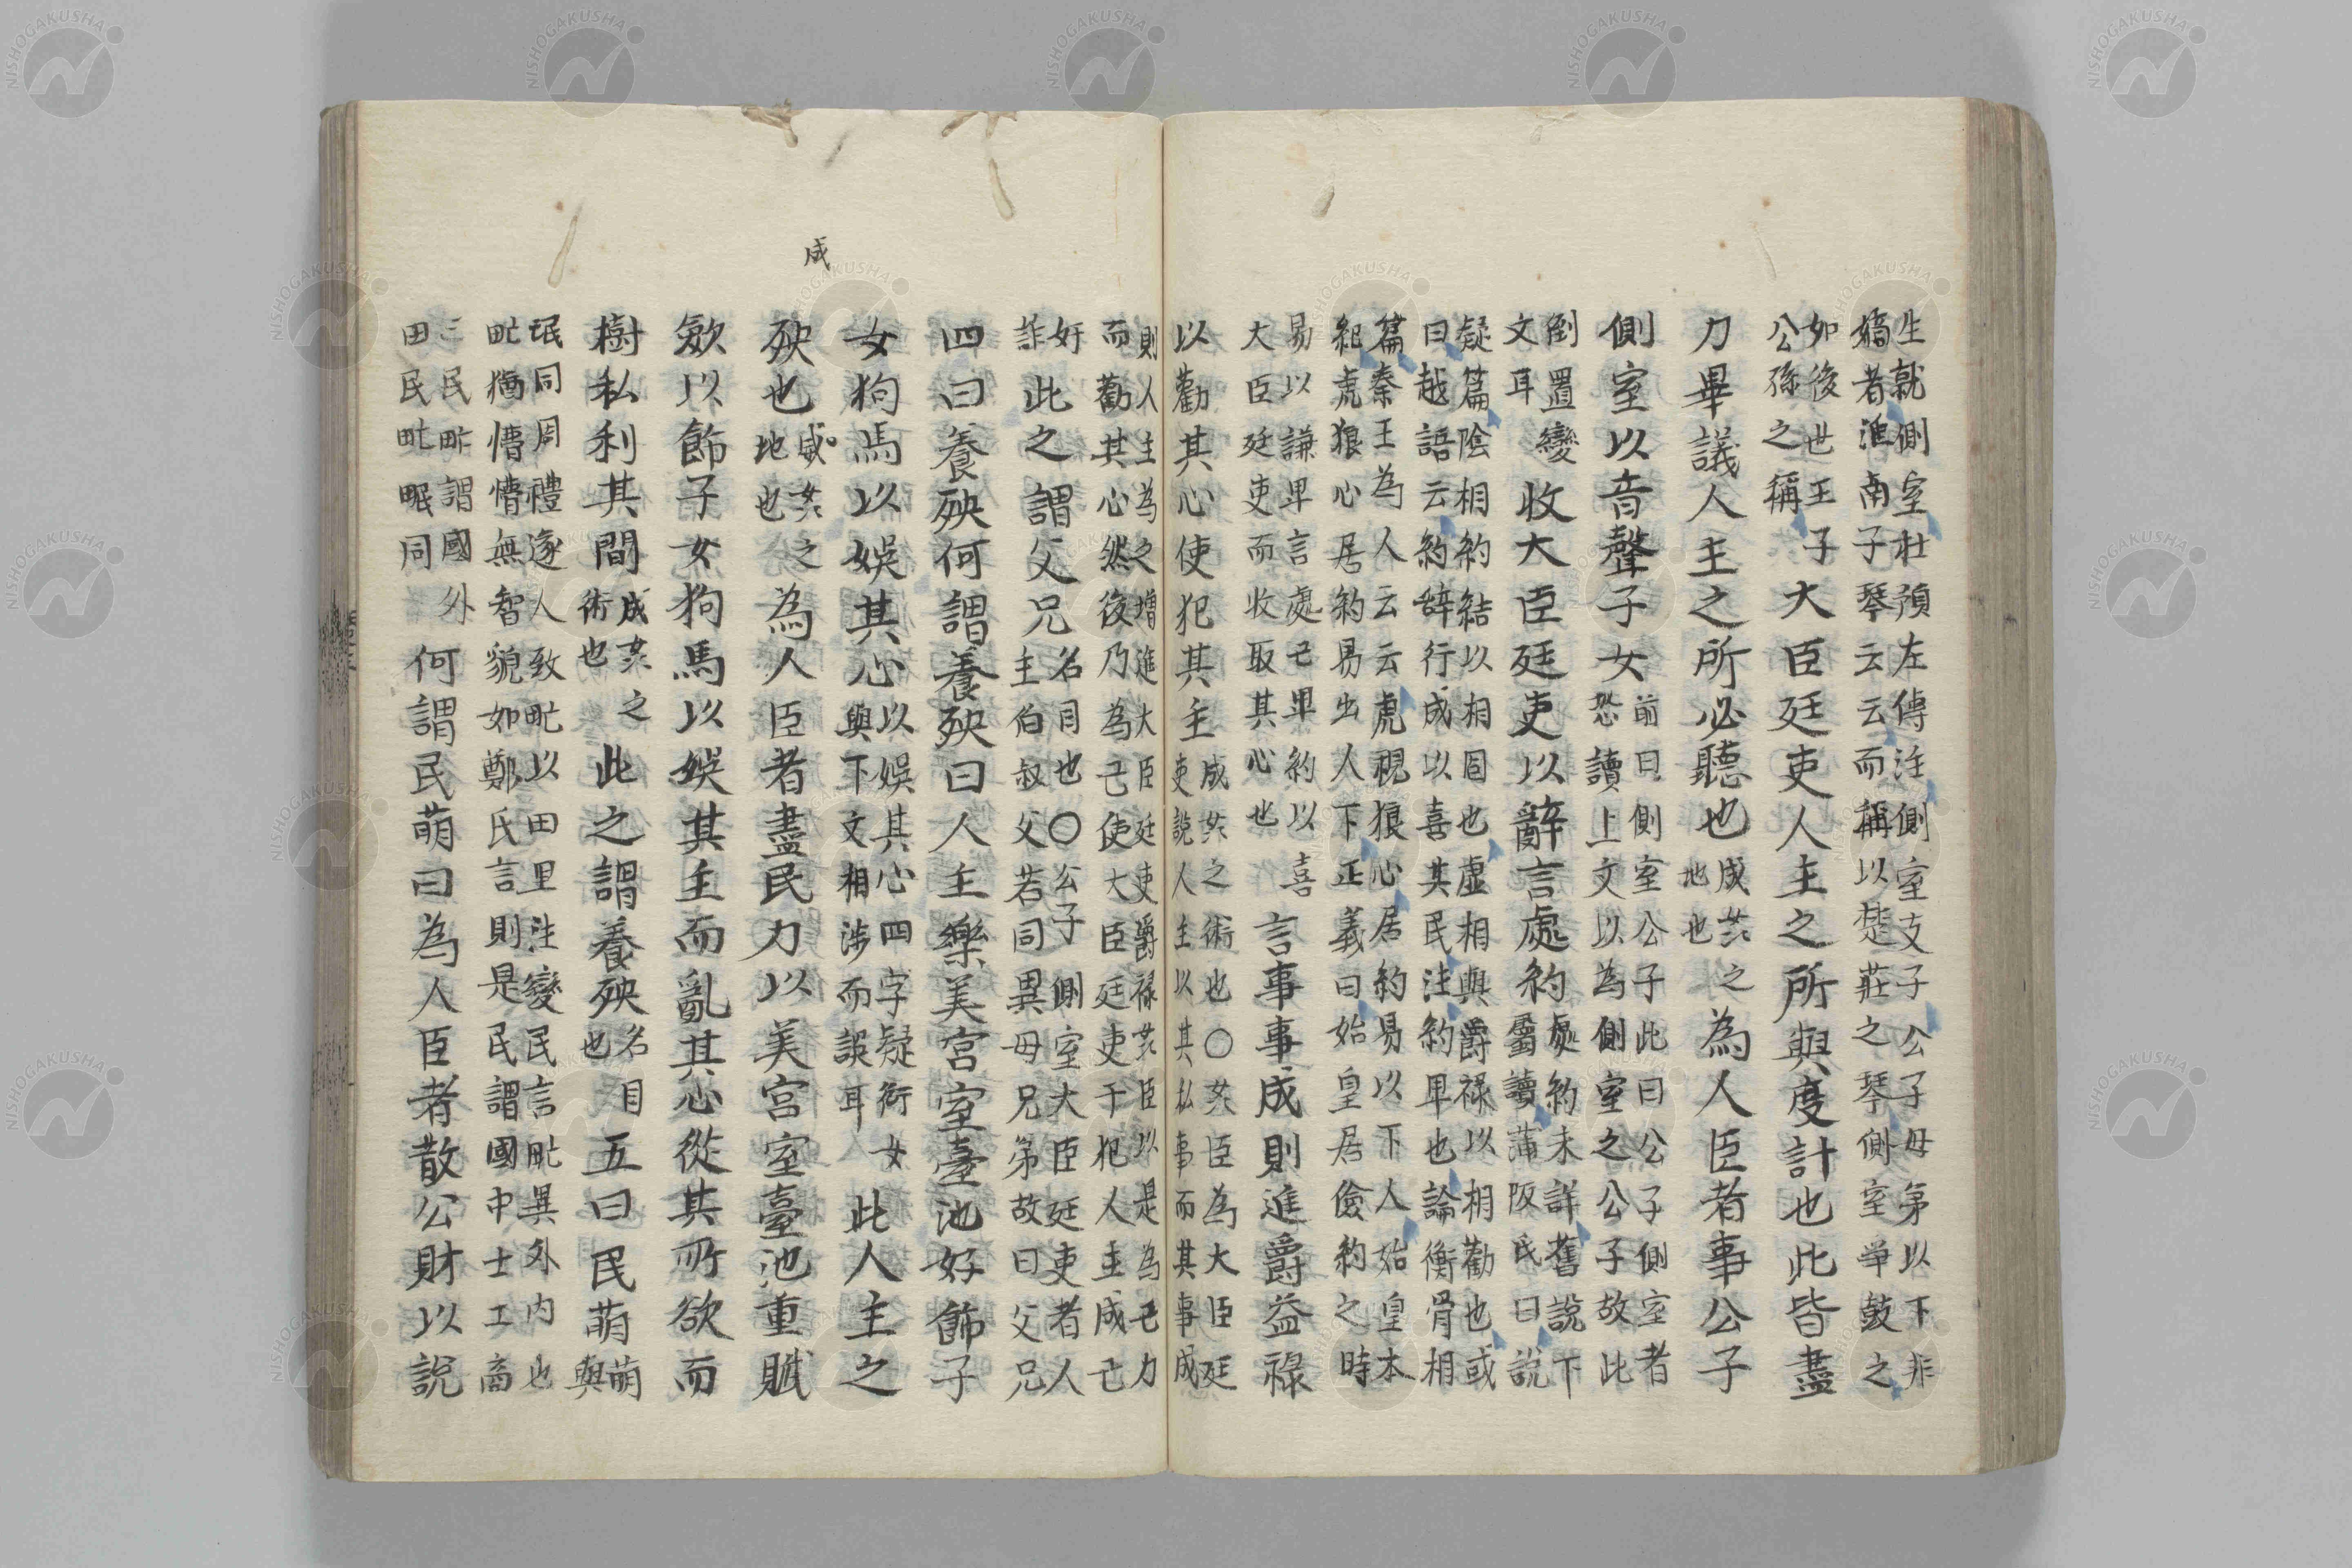 生就側室杜預左傳注側室支子公子母弟以下非
嫡者淮南子琴云云而稱以楚莊之琴側室爭鼓之
如後世王子
公孫之稱
大臣廷吏人主之所與度計也此皆盡
力畢議人主之所必聽也
成其之
地也
為人臣者事公子
側室以音聲子女
前曰側室公子此曰公子側室者
恐讀上文以為側室之公子故此
倒置變
文耳
收大臣廷吏以辭言處約
處約未詳舊說下
屬讀蒲阪氏曰說
疑篇陰相約結以相固也虛相與爵祿以相勸也或
曰越語云約辭行成以喜其民注約卑也論衡骨相
篇秦王為人云云虎視狼心居約易以下人始皇本
紀虎狼心居約易出人下正義曰始皇居儉約之時
易以謙卑言處己卑約以喜
大臣廷吏而收取其心也
言事事成則進爵益祿
以勸其心使犯其主
成其之術也〇其臣為大臣廷
吏說人主以其私事而其事成
則人主為之增進大臣廷吏爵祿其臣以是為己力
而勸其心然後乃為己使大臣廷吏于犯人主成己
奸
詐
此之謂父兄
名目也〇公子側室大臣廷吏者人
主伯叔父若同異母兄弟故曰父兄
四曰養殃何謂養殃曰人主樂美宮室臺池好飾子
女狗馬以娛其心
以娛其心四字疑衍女
與下文相涉而誤耳
此人主之
成
殃也
威其之
地也
為人臣者盡民力以美宮室臺池重賦
斂以飾子女狗馬以娛其主而亂其心從其所欲而
樹私利其間
成其之
術也
此之謂養殃
名目
也
五曰民萌
萌
與
氓同周禮遂人致甿以田里注變民言甿異外內也
甿猶懵懵無智貌如鄭氏言則是民謂國中士工商
三民甿謂國外
田民甿氓同
何謂民萌曰為人臣者散公財以說